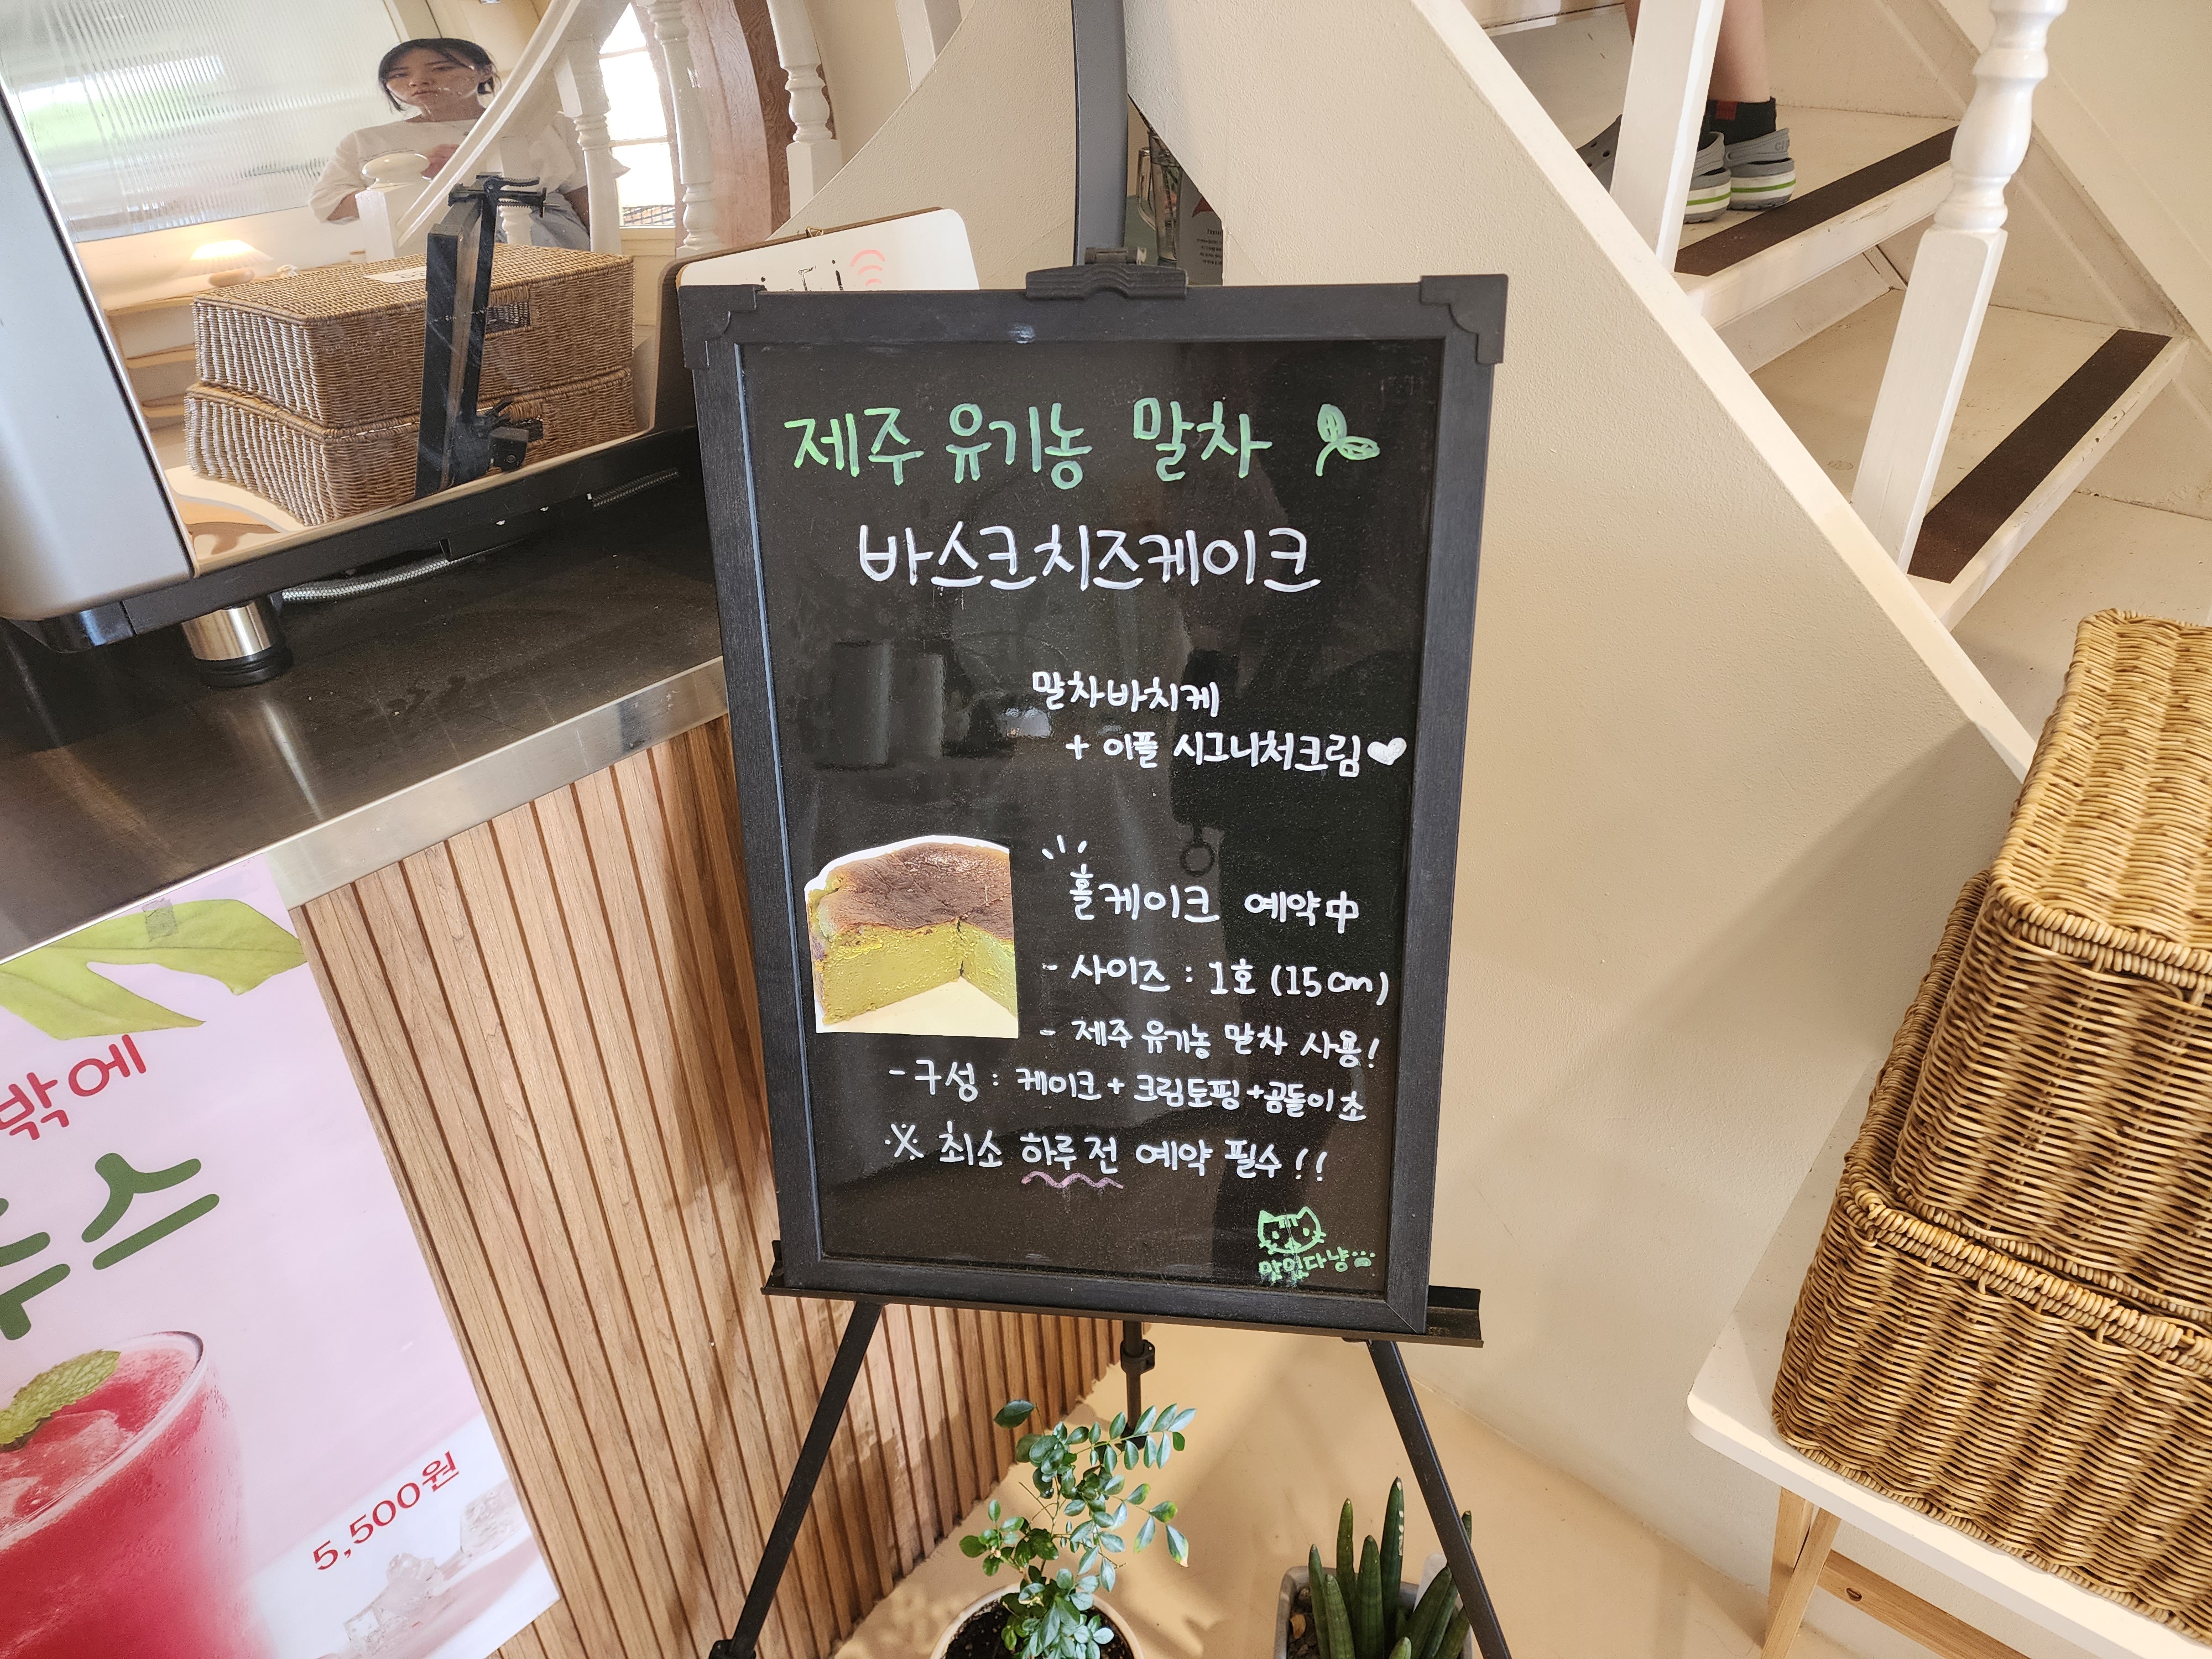 제주 유기농 말차
바스크치즈케이크
말차바치케
+ 이플 시그니처크림♥
홀케이크 예약中
- 사이즈 : 1호 (15cm)
- 제주 유기농 말차 사용!
- 구성 : 케이크 + 크림토핑 + 곰돌이 초
※ 최소 하루 전 예약 필수!!
맛있다냥
밖에
스
5,500원